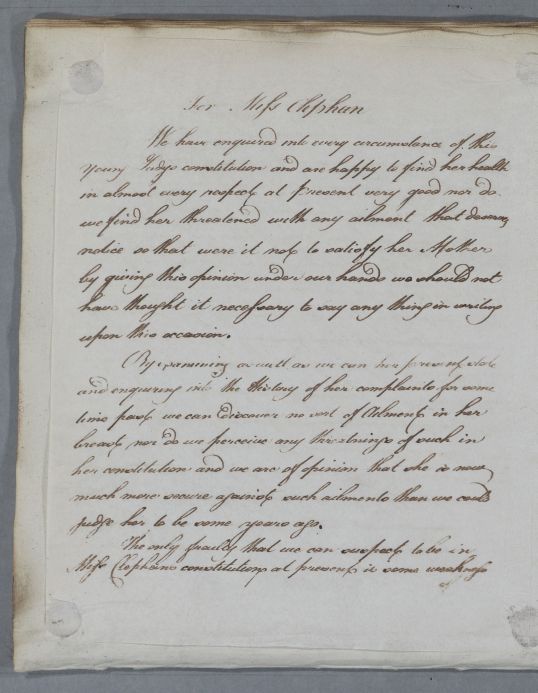 For Miss Clephan
We have enquired into every circumstance of this
young Ladys constitution and are happy to find her health
in almost every respect at present very good nor do
we find her threatened with any ailment that deserves
notice so that were it not to satisfy her Mother
by giving this opinion under our hands we should not
have thought it necessary to say any thing in writing
upon this occasion.
By examining as well as we can her present state
and enquiring into the History of her complaints for some
time past we can discover no sort of Ailment in her
breast nor do we perceive any threatnings of such in
her constitution and we are of opinion that she is now
much more secure against such ailments than we could
judge her to be some years ago.
The only faults that we can suspect to be in
Miss Clephans constitution at present is some weakness